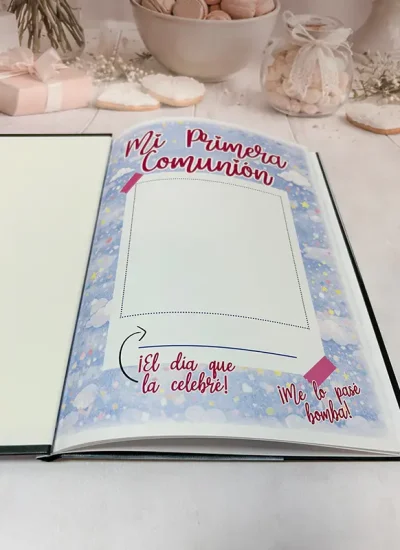 Mi Primera
Comunión
¡El día que
la celebré!
¡Me lo pasé
bomba!